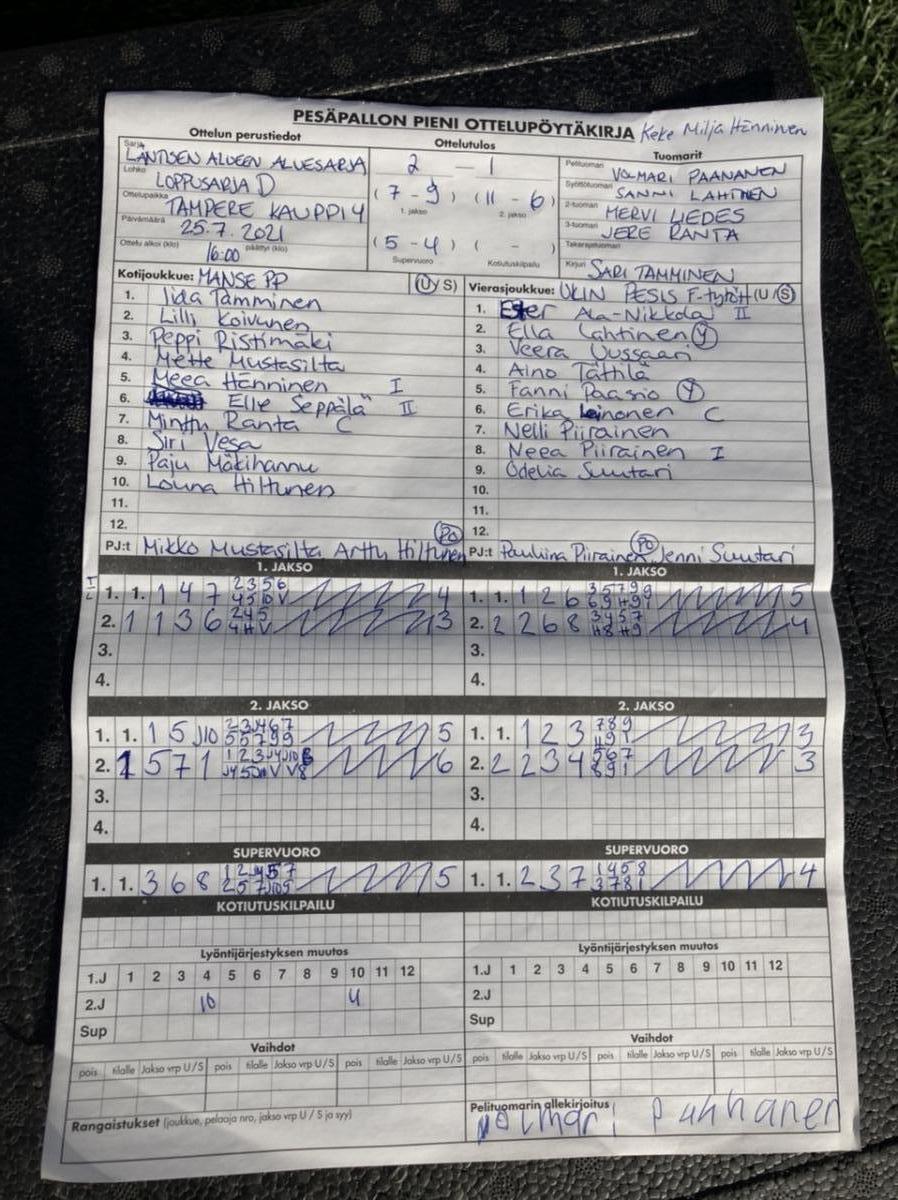 PESÄPALLON PIENI OTTELUPÖYTÄKIRJA Keke Milja Hänninen
Ottelun perustiedot
Sarja LÄNTISEN ALUEEN ALUESARJA
Lohko LOPPUSARJA D
Ottelupaikka TAMPERE KAUPPI 4
Päivämäärä 25.7.2021
Ottelu alkoi (klo) 16:00 päättyi (klo)
Ottelutulos
2 — 1
(7 - 9) (11 - 6)
1. jakso 2. jakso
(5 - 4) ( - )
Supervuoro Kotiutuskilpailu
Tuomarit
Pelituomari VOLMARI PAANANEN
Syöttötuomari SANNI LAHTINEN
2-tuomari MERVI LIEDES
3-tuomari JERE RANTA
Takarajatuomari
Kirjuri SARI TAMMINEN
Kotijoukkue: MANSE PP (U/S)
1. Iida Tamminen
2. Lilli Koivunen
3. Peppi Ristimäki
4. Mette Mustasilta
5. Meea Hänninen I
6. Elle Seppälä II
7. Minttu Ranta C
8. Siri Vesa
9. Paju Mäkihannu
10. Louna Hiltunen
11.
12.
PJ:t Mikko Mustasilta Arttu Hiltunen Po
Vierasjoukkue: UKIN PESIS F-tytöt (U/S)
1. Ester Ala-Nikkola II
2. Ella Lahtinen Y
3. Veera Uussaari
4. Aino Tättilä
5. Fanni Paasio Y
6. Erika Leinonen C
7. Nelli Piirainen
8. Neea Piirainen I
9. Odelia Suutari
10.
11.
12.
PJ:t Pauliina Piirainen Po Jenni Suutari
1. JAKSO
1. 1. 1 4 7 4
2. 1 1 3 6 3
3.
4.
1. JAKSO
1. 1. 1 2 6 5
2. 2 2 6 8 4
3.
4.
2. JAKSO
1. 1. 1 5 J10 5
2. 1 5 7 1 6
3.
4.
2. JAKSO
1. 1. 1 2 3 3
2. 2 2 3 4 3
3.
4.
SUPERVUORO
1. 1. 3 6 8 5
SUPERVUORO
1. 1. 2 3 7 4
KOTIUTUSKILPAILU
KOTIUTUSKILPAILU
Lyöntijärjestyksen muutos
1.J 1 2 3 4 5 6 7 8 9 10 11 12
2.J 10 4
Sup
Lyöntijärjestyksen muutos
1.J 1 2 3 4 5 6 7 8 9 10 11 12
2.J
Sup
Vaihdot
pois tilalle Jakso vrp U/S pois tilalle Jakso vrp U/S pois tilalle Jakso vrp U/S
Vaihdot
pois tilalle Jakso vrp U/S pois tilalle Jakso vrp U/S pois tilalle Jakso vrp U/S
Rangaistukset (joukkue, pelaaja nro, jakso vrp U / S ja syy)
Pelituomarin allekirjoitus